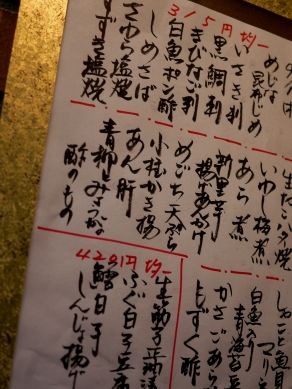 315円均一
めじな昆布じめ
いさき刺
黒鯛刺
きびなご刺
白魚ポン酢
しめさば
さわら塩焼
すずき塩焼
いわし梅煮
あら煮
新里芋
揚げあんかけ
めごち天ぷら
小柱かき揚
あん肝
青柳みょうが
酢のもの
420円均一
ふぐ白子豆腐
鱈白子
しんじょ揚げ
白魚
青海苔
かさごあら
もずく酢